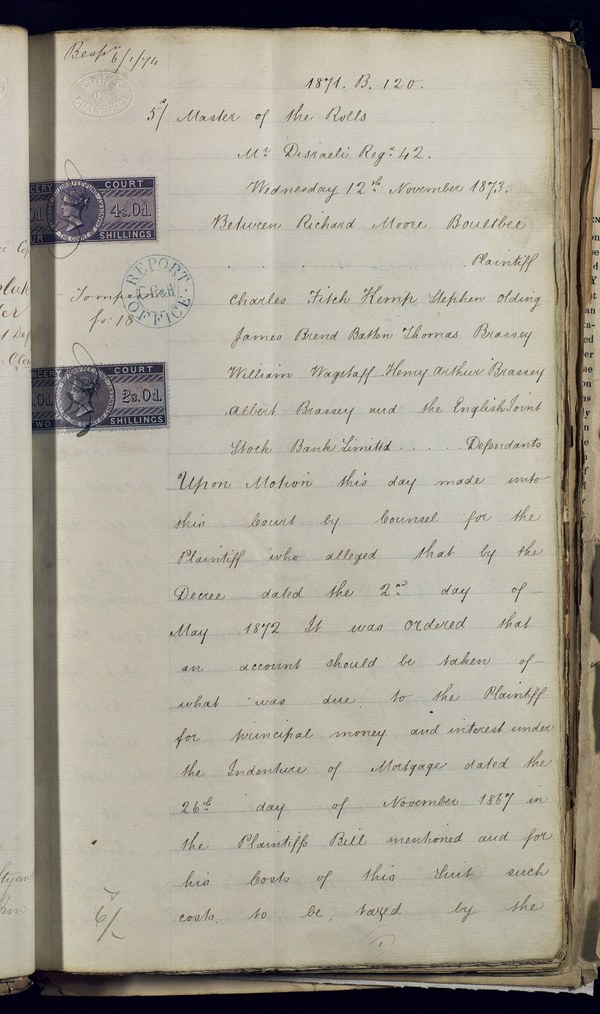 Besp^n 6/1/74
1871. B. 120.
5/ Master of the Rolls
Mr. Disraeli Regr. 42.
Wednesday 12th November 1873.
Between Richard Moore Boultbee
Plaintiff
Charles Fitch Kemp Stephen Olding
James Brend Batten Thomas Brassey
William Wagstaff Henry Arthur Brassey
Albert Brassey and the English Joint
Stock Bank Limited . . . . . Defendants
Upon Motion this day made unto
this Court by Counsel for the
Plaintiff who alleged that by the
Decree dated the 2nd day of
May 1872 It was ordered that
an account should be taken of
what was due to the Plaintiff
for principal money and interest under
the Indenture of Mortgage dated the
26th day of November 1867 in
the Plaintiffs Bill mentioned and for
his Costs of this Suit such
costs to be taxed by the
COURT
4s. 0d.
SHILLINGS
REPORT
OFFICE
fo: 18
COURT
2s. 0d.
SHILLINGS
6/